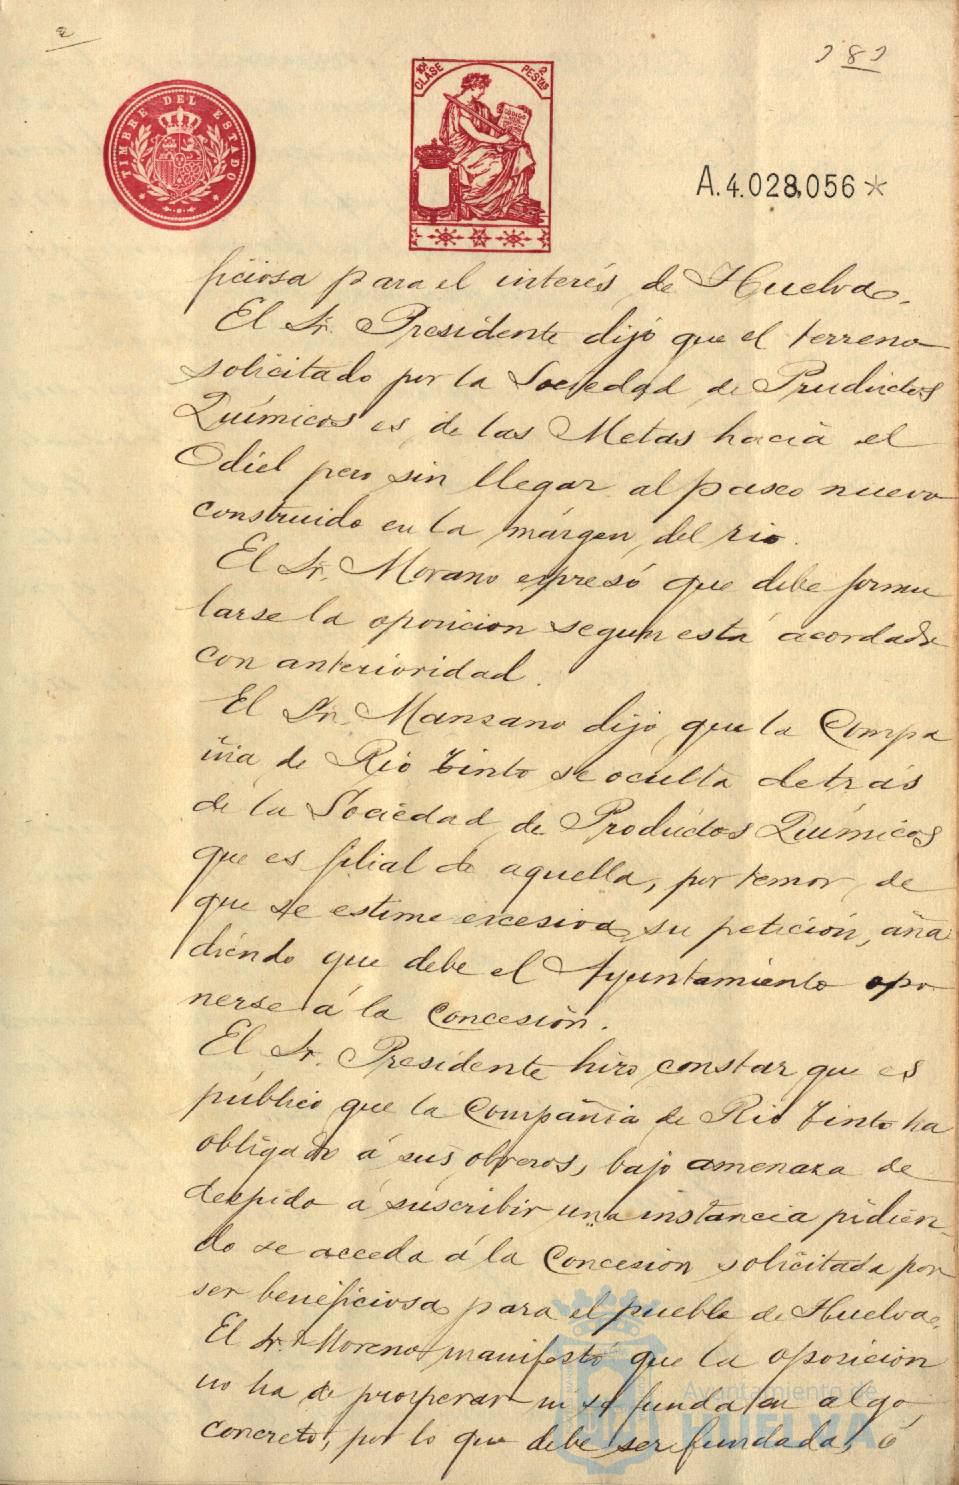 181
TIMBRE DEL ESTADO
10ª CLASE
2 PESTAS
A.4.028,056 *
ficiosa para el interés de Huelva.
El Sr. Presidente dijó que el terreno
solicitado por la Sociedad de Productos
Químicos es de las Metas hacia el
Odiel pero sin llegar al paseo nuevo
construido en la márgen del rio.
El Sr. Morano espresó que debe formu
larse la oposicion segun está acordado
con anterioridad.
El Sr. Manzano dijó que la Compa
ñia de Rio Tinto se oculta detrás
de la Sociedad de Productos Químicos
que es filial de aquella, por temor de
que se estime excesiva su petición, aña
diendo que debe el Ayuntamiento opo
nerse á la Concesión.
El Sr. Presidente hizo constar que es
público que la Compañia de Rio Tinto ha
obligado á sus obreros, bajo amenaza de
despido á suscribir una instancia pidien-
do se acceda á la Concesion solicitada por
ser beneficiosa para el pueblo de Huelva.
El Sr. Moreno manifestó que la oposicion
no ha de prosperar ni se funda en algo
concreto, por lo que debe ser fundada, ó
Ayuntamiento de
HUELVA